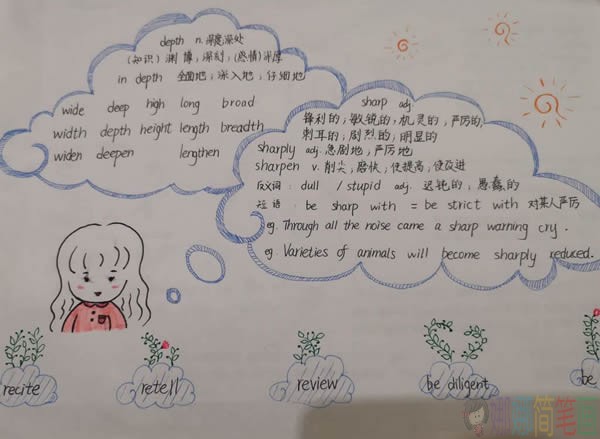 depth n. 深度深处
(知识)渊博,深刻;(感情)深厚
in depth 全面地;深入地;仔细地
wide deep high long broad
width depth height length breadth
widen deepen lengthen
sharp adj
锋利的;敏锐的,机灵的;严厉的,
刺耳的;剧烈的;明显的
sharply adj. 急剧地,严厉地
sharpen v. 削尖;磨快;使提高;使改进
反义词: dull / stupid adj. 迟钝的,愚蠢的
短语: be sharp with = be strict with 对某人严厉
eg. Through all the noise came a sharp warning cry.
eg. Varieties of animals will become sharply reduced.
recite
retell
review
be diligent
be
简笔画